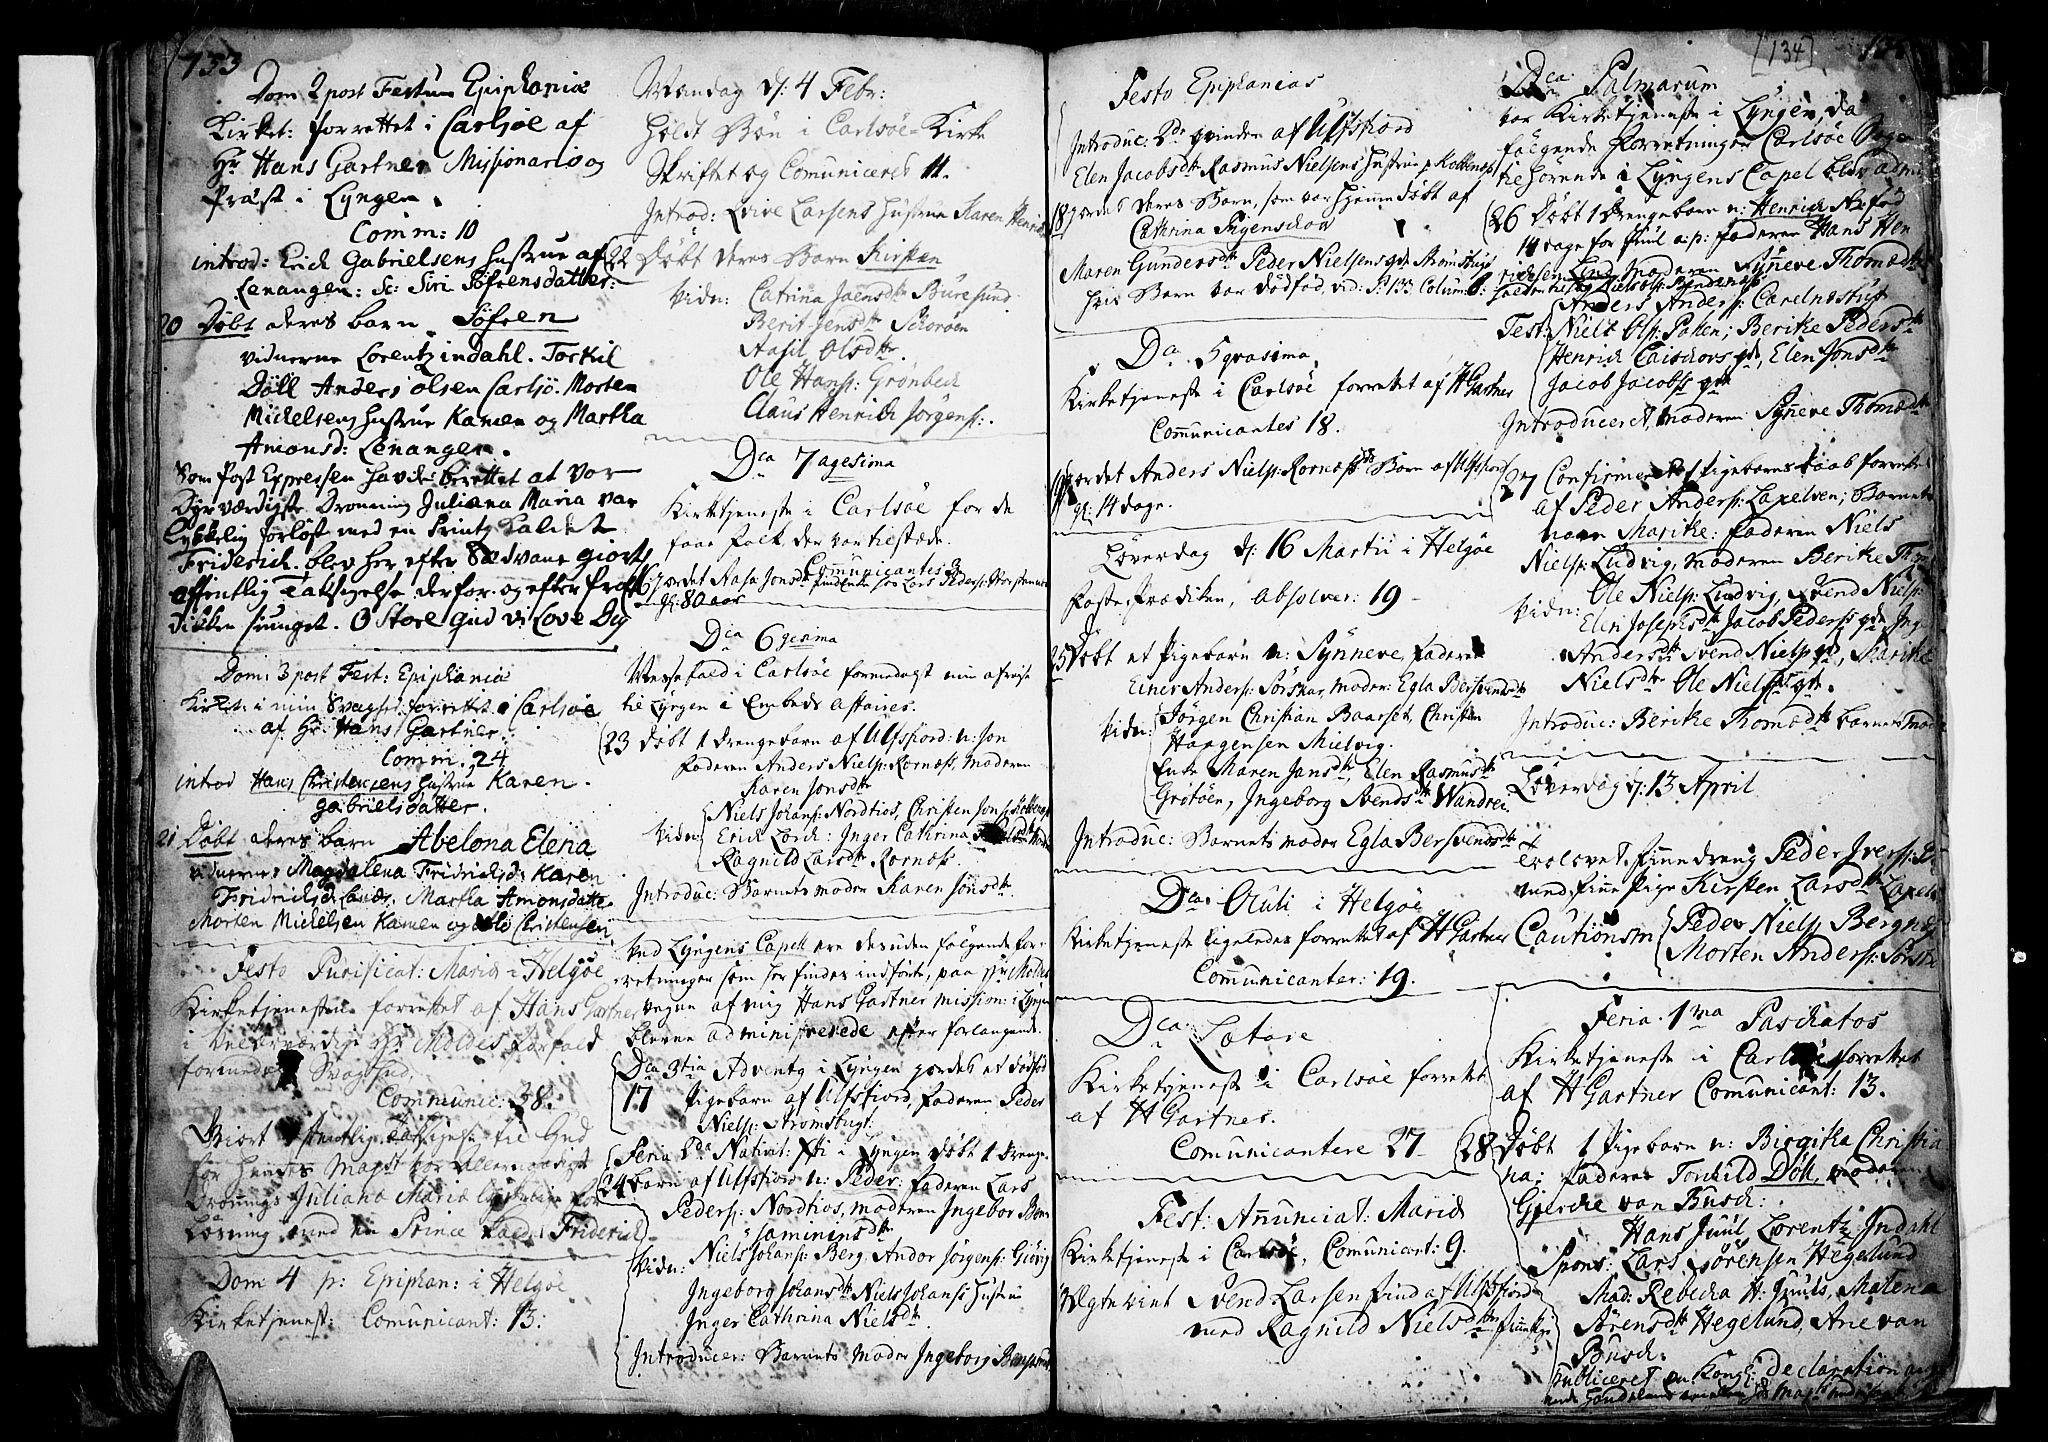 133
Dom 2 post Festum Epiphaniæ
Kirket: forrettet i Carlsöe af
Hr Hans Gartner Missionario og
Præst i Lyngen.
Comm: 10
introd: Erick Gabrielsens hustrue af
Lenangen: Sc: Siri Söfrensdatter:
20 Döbt deres barn Söfren
vidnerne Lorentz indahl. Torkil
Döll Anders olsen Carlsö. Morten
Mickelsens hustrue Karen og Martha
Amonsd: Lenangen.
Som Post Expressen havde berettet at vor
Dyrværdigste Dronning Juliana Maria var
lykkelig forlöst med en Printz kaldet
Friderich. blev her efter Sædvane giort
offentlig Taksigelse derfor og efter Præ
diken siunget. O Store gud vi Love Dig
Dom: 3 post Fest: Epiphaniæ
Kirket: i min Svaghed forrettet i Carlsöe
af Hr: Hans Gartner.
Comm. 24
introd Hans Christensens hustrue Karen
gabrielsdatter.
21 Döbt deres barn Abelona Elena
vidnerne Magdalena Fridrichsd: Karen
Fridrichsd: Martha Amonsdatter
Morten Mickelsen Karen og Christensen
Festo Purificat: Mariæ i Helgöe
Kirketjenesten forrettet af Hans Gartner
i Velærværdige Hr Moldes forfald
formedelst Svaghed.
Communic: 38.
Giort offentlig Taksigelse til Gud
for hendes Mayst vor allernaadigste
Dronnings Juliana Maria lykkelig for
lösning med en Prince kaldet Friderich
Dom 4 p: Epiphan: i Helgöe
Kirketjenest: Comunicant: 13.
Mandag d: 4 Febr:
holdt Bön i Carlsöe Kirke
Skriftet og Comuniceret 11.
Introd: Larsens hustrue Karen Henrichs
22 Döbt deres Barn Kirsten
vidn: Catrina Jaensdtr Buresund
Berit Jensdtr Skoröen
Aasil Olsdtr
Ole Hans: Grönbeck
Claus Henrich Jörgens:.
Dca 7 agesima
Kirketjeneste i Carlsöe for de
faae folk der var tilstæde.
Comunicantes 3
16 jordet Aasa Jonsdtr Lars Peders:
gl: 80 aar
Dca 6 gesima
Messefald i Carlsöe formedelst min afreise
til Lyngen i Embeds affaires.
23 döbt 1 drengebarn af Ulfsfiord: n: Jon
faderen Anders Niels: Rornæss, moderen
Karen Jonsdtr
vidn: Niels Johans: Nordtios, Christen Jons:
Erich Lorck: Inger Cathrina
Ragnild Larsdtr Rornæss.
Introduc: Barnets moder Karen Jonsdtr
Ved Lyngens Capell ere desuden fölgende for-
retninger som her findes indförte, paa Hr Moldes
vegne af mig Hans Gartner mission: i Lyngen
blevne administrerede efter forlangende.
Dca 3tia Adventq i Lyngen jordet et dödföd
17 Pigebarn af Ulfsfiord, faderen Peder
Niels: Strömsbugt.
Feria 2da Nativit: Xti i Lyngen döbt 1 drenge
24 barn af Ulfsfiord n: Peder: faderen Lars
Peders: Nordtios, moderen Ingebor Ben
jaminsdtr
vidn: Niels Johans: Berg, Andor Jörgens: Giövig
Ingeborg Johansdtr Niels Johans: hustrue
Inger Cathrina Nielsdtr.
Introducer: Barnets moder Ingeborg
[134]
Festo Epiphanias
Introduc: 2de qvinder af Ulfsfiord
Elen Jacobsdtr Rasmus Nielsens hustrue
18 jordet deres Barn, som var hjemmedöbt af
Cathrina
Maren Gundersdtr Peder Nielsens qde Strömsbugt
hvis Barn var dödföd, vid: P: 133 Colum:
Dca 5 qvasima
Kirketjeneste i Carlsöe forrettet af HGartner
Communicantes 18.
19 jordet Anders Niels: Rornæss Barn af Ulfsfiord
gl: 14 dage.
Löverdag d: 16 Martii i Helgöe
Faste Prædiken, absolver: 19
25 Döbt et Pigebarn n: Synneve, faderen
Einer Anders: Sörskar, moder: Egla Bersvendsdtr
vidn: Jörgen Christian Baarset, Christen
Haagensen Mielvig.
Enke Maren Jansdtr, Elen Rasmusdtr
Grötöen, Ingeborg Svendsdtr Wandrei
Introduc: Barnets moder Egla Bersvendsdtr
Dca Oculi i Helgöe
Kirketjeneste ligeledes forrettet af HGartner
Comunicanter: 19.
Dca Lætare
Kirketjeneste i Carlsöe forrettet
af HGartner.
Comunicantere 27
Fest: Annunciat: Mariæ
Kirketjeneste i Carlsöe, Comunicant: 9.
Ægteviet Svend Larsen find af Ulfsfiord
med Ragnild Nielsdtr
Dca Palmarum
var Kirketjeneste i Lyngen, da
fölgende Forretninger Carlsöe
tilhörende i Lyngens Capel blev admi
26 Döbt 1 drengebarn n: Henrich föd
14 dage for Juul a: p: faderen Hans Hen
richsen Lind, Moderen Synneve Thomædtr
Anders Anders:
Test: Niels Ols: Berithe Pedersdtr
Henrich qde, Elen Jonsdtr
Jacob Jacobss qde
Introduceret, moderen Synneve Thomædtr
27 Confirmeret Pigebarns daab forrettet
af Peder Anders: Laxelven; Barnets
navn Marithe: faderen Niels
Niels: Ludvig, moderen Berithe
vidn: Ole Niels: Ludvig, Svend Niels:
Elen Josephsdtr Jacob Pederss qde, Ing
Andersdtr Svend Nielss qde, Marithe
Nielsdtr Ole Nielss qde.
Introduc: Berithe Thomædtr barnets moder
Löverdag d: 13 April
Trolovet finnedreng Peder Ivers:
med finne Pige Kirsten Larsdtr
Cautionsm Peder Niels: Bergn
Morten Anders:
Feria 1ma Paschatos
Kirketjeneste i Carlsöe forrettet
af HGartner Comunicant: 13.
28 Döbt 1 Pigebarn n: Birgitha Christia
na; faderen Torkild Döll, moderen
Gjerche van Busch:
Hans Juul, Lorentz Indahl
Spons: Lars Sörensen Hegelund
Mad: Rebecka H: Juuls, Malena
Sörensdtr Hegelund, Ane van
Busch:
Publiceret en Kongl: declaration